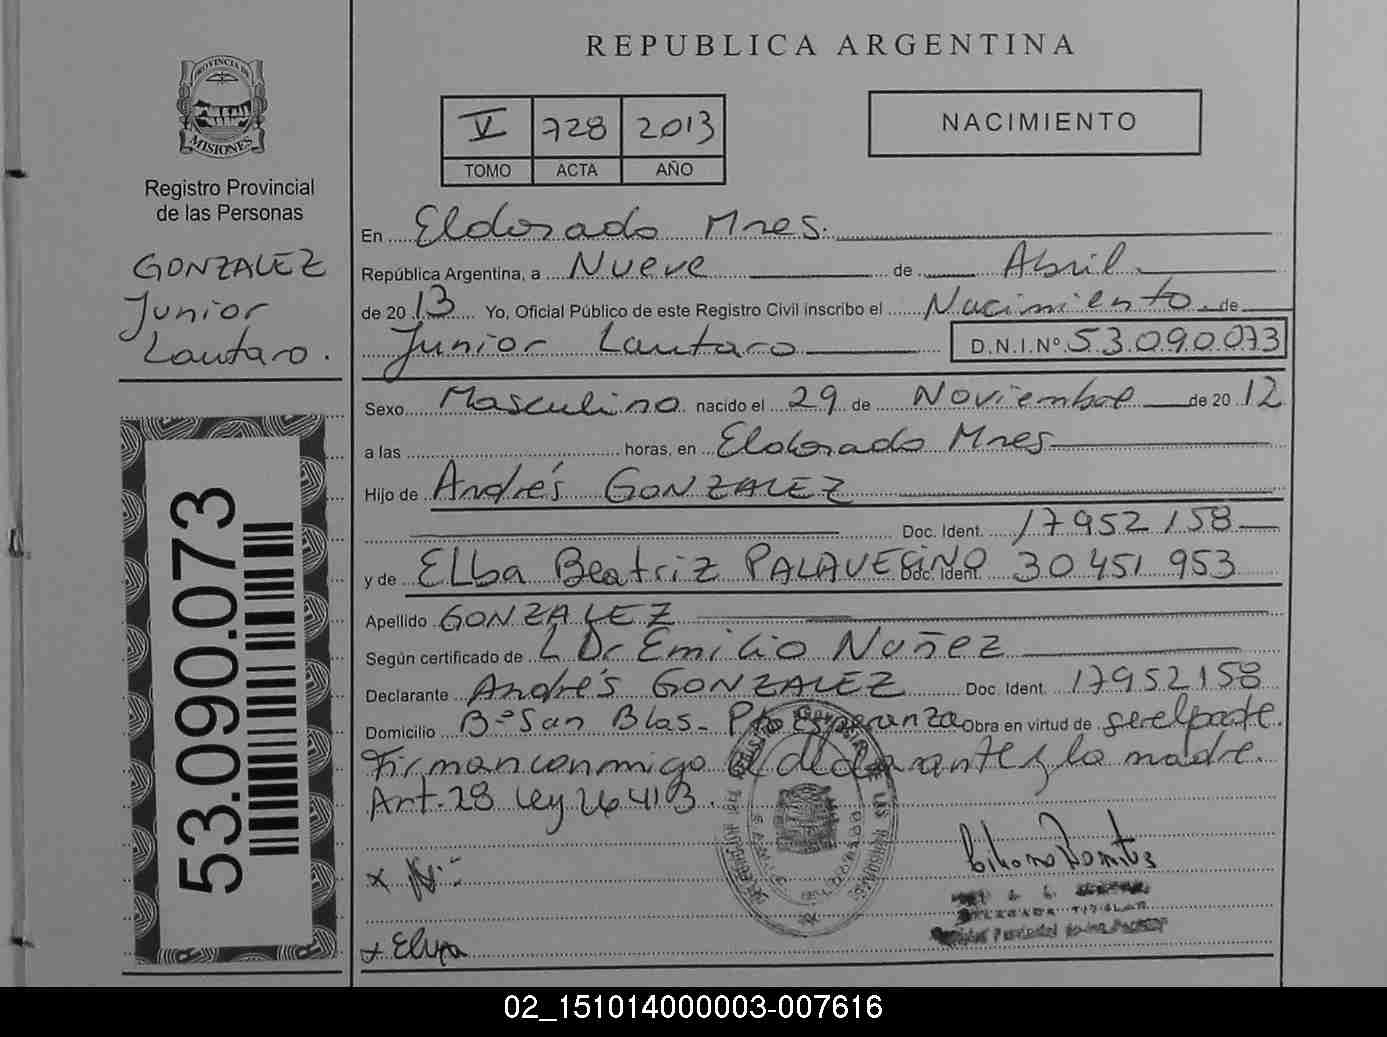 REPUBLICA ARGENTINA
PROVINCIA DE
MISIONES
Registro Provincial
de las Personas
GONZALEZ
Junior
Lautaro.
53.090.073
V 728 2013
TOMO ACTA AÑO
NACIMIENTO
En Eldorado Mnes.
República Argentina, a Nueve de Abril
de 2013 Yo, Oficial Público de este Registro Civil inscribo el Nacimiento de
Junior Lautaro D.N.I.Nº 53.090.073
Sexo Masculino nacido el 29 de Noviembre de 2012
a las horas, en Eldorado Mnes
Hijo de Andrés GONZALEZ
Doc. Ident. 17952158
y de Elba Beatriz PALAVECINO Doc. Ident. 30451953
Apellido GONZALEZ
Según certificado de L Dr Emilio Nuñez
Declarante Andrés GONZALEZ Doc. Ident. 17952158
Domicilio Bº San Blas - Pto Esperanza Obra en virtud de ser el padre.
Firman conmigo el declarante y la madre.
Art. 28 ley 26413.
x
x Elva
DELEGADA TITULAR
02_151014000003-007616